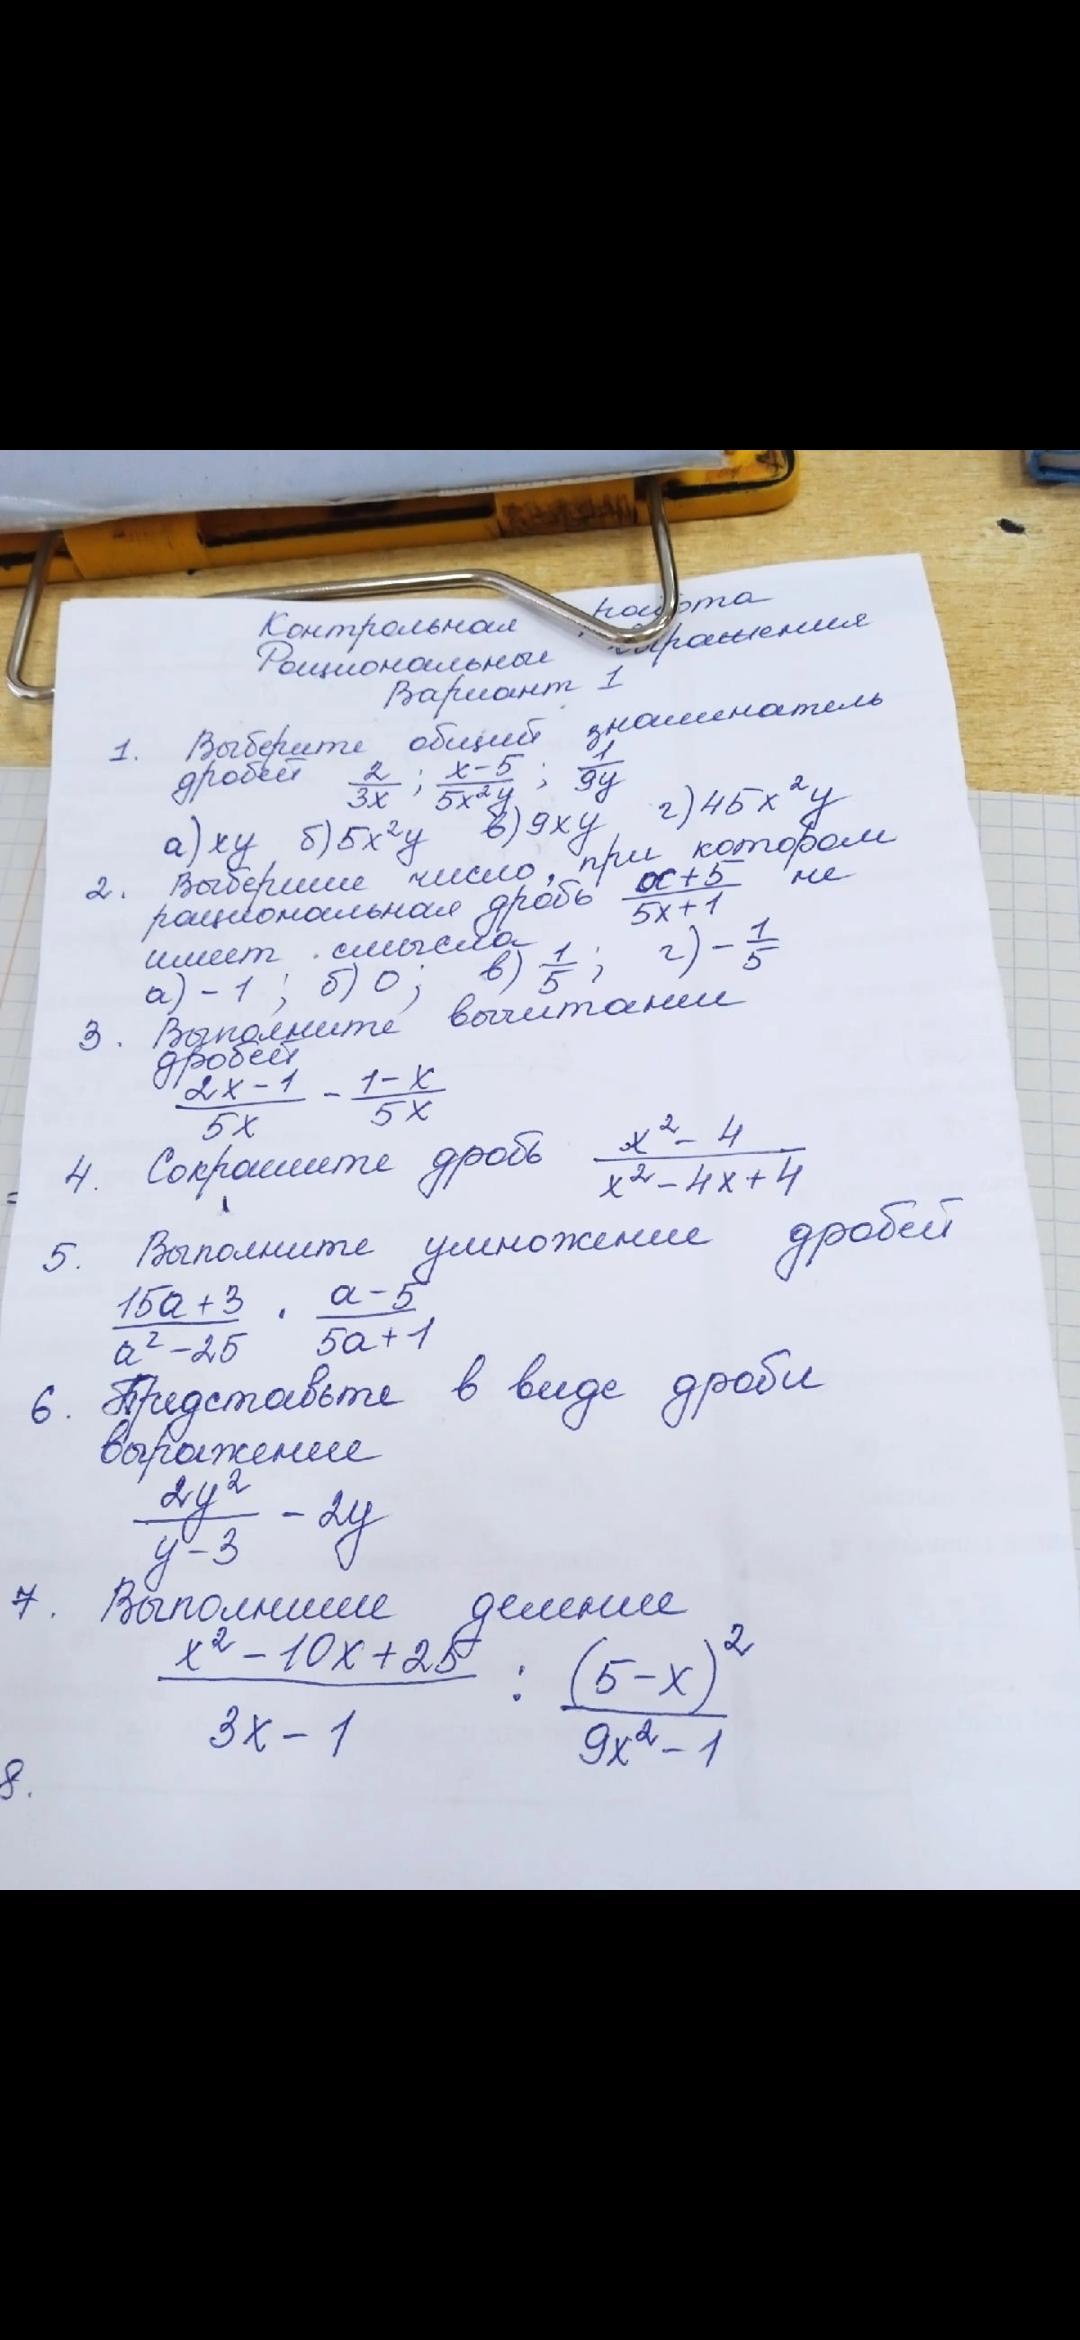 Контрольная работа
Рациональные выражения
Вариант 1
1. Выберите общий знаменатель
дробей 2/3x ; x-5/5x²y ; 1/9y
а) xy б) 5x²y в) 9xy г) 45x²y
2. Выберите число, при котором
рациональная дробь x+5/5x+1 не
имеет смысла
а) -1 ; б) 0 ; в) 1/5 ; г) -1/5
3. Выполните вычитание
дробей
2x-1/5x - 1-x/5x
4. Сократите дробь x²-4/x²-4x+4
5. Выполните умножение дробей
15a+3/a²-25 · a-5/5a+1
6. Представьте в виде дроби
выражение
2y²/y-3 - 2y
7. Выполните деление
x²-10x+25/3x-1 : (5-x)²/9x²-1
8.